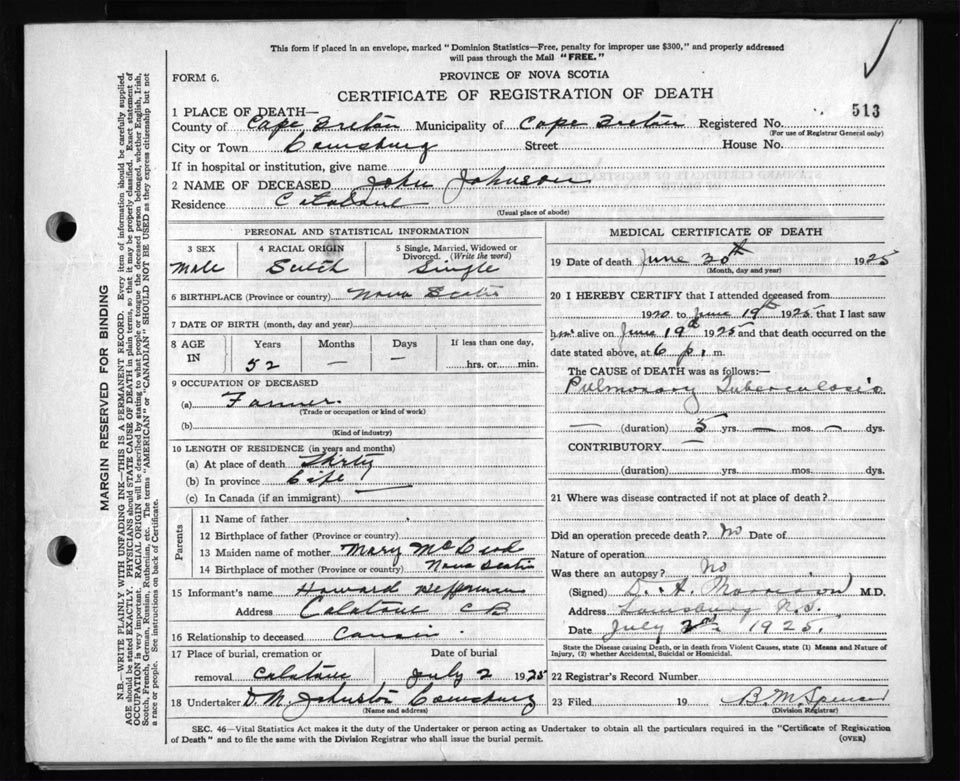 This form if placed in an envelope, marked "Dominion Statistics—Free, penalty for improper use $300," and properly addressed
will pass through the Mail "FREE."
FORM 6.
PROVINCE OF NOVA SCOTIA
CERTIFICATE OF REGISTRATION OF DEATH
513
1 PLACE OF DEATH—
County of Cape Breton Municipality of Cape Breton Registered No.
(For use of Registrar General only)
City or Town Louisburg Street House No.
If in hospital or institution, give name
2 NAME OF DECEASED John Johnson
Residence Catalone
(Usual place of abode)
PERSONAL AND STATISTICAL INFORMATION
3 SEX 4 RACIAL ORIGIN 5 Single, Married, Widowed or Divorced. (Write the word)
Male Scotch Single
6 BIRTHPLACE (Province or country) Nova Scotia
7 DATE OF BIRTH (month, day and year)
8 AGE IN Years Months Days If less than one day,
52 — — hrs. or min.
9 OCCUPATION OF DECEASED
(a) Farmer.
(Trade or occupation or kind of work)
(b)
(Kind of industry)
10 LENGTH OF RESIDENCE (in years and months)
(a) At place of death Thirty
(b) In province Life
(c) In Canada (if an immigrant) —
Parents
11 Name of father
12 Birthplace of father (Province or country)
13 Maiden name of mother Mary McLeod
14 Birthplace of mother (Province or country) Nova Scotia
15 Informant's name Howard
Address Catalone C B
16 Relationship to deceased Cousin
17 Place of burial, cremation or removal Date of burial
Catalone July 2 1925
18 Undertaker D. M. Johnston Louisburg
(Name and address)
MEDICAL CERTIFICATE OF DEATH
19 Date of death June 30th 1925
(Month, day and year)
20 I HEREBY CERTIFY that I attended deceased from
1920 to June 19th 1925, that I last saw
him alive on June 19th 1925 and that death occurred on
date stated above, at 6 p. m.
The CAUSE of DEATH was as follows:—
Pulmonary Tuberculosis
— (duration) 5 yrs. — mos. — dys.
CONTRIBUTORY —
(duration) yrs. mos. dys.
21 Where was disease contracted if not at place of death?
Did an operation precede death? No Date of
Nature of operation
Was there an autopsy? No
(Signed) D. A. Morrison M.D.
Address Louisburg N.S.
Date July 2nd 1925.
State the Disease causing Death, or in death from Violent Causes, state (1) Means and Nature of
Injury, (2) whether Accidental, Suicidal or Homicidal.
22 Registrar's Record Number
23 Filed 19 B. M. Spencer
(Division Registrar)
SEC. 46—Vital Statistics Act makes it the duty of the Undertaker or person acting as Undertaker to obtain all the particulars required in the "Certificate of Registration
of Death" and to file the same with the Division Registrar who shall issue the burial permit.
(OVER)
MARGIN RESERVED FOR BINDING
N.B.—WRITE PLAINLY WITH UNFADING INK—THIS IS A PERMANENT RECORD. Every item of information should be carefully supplied.
AGE should be stated EXACTLY. PHYSICIANS should STATE CAUSE OF DEATH in plain terms, so that it may be properly classified. Exact statement of
OCCUPATION is very important. RACIAL ORIGIN will be described by stating to what people or tongue the deceased person belonged, whether English, Irish,
Scotch, French, German, Russian, Ruthenian, etc. The terms "AMERICAN" or "CANADIAN" SHOULD NOT BE USED as they express citizenship but not
a race or people. See instructions on back of Certificate.